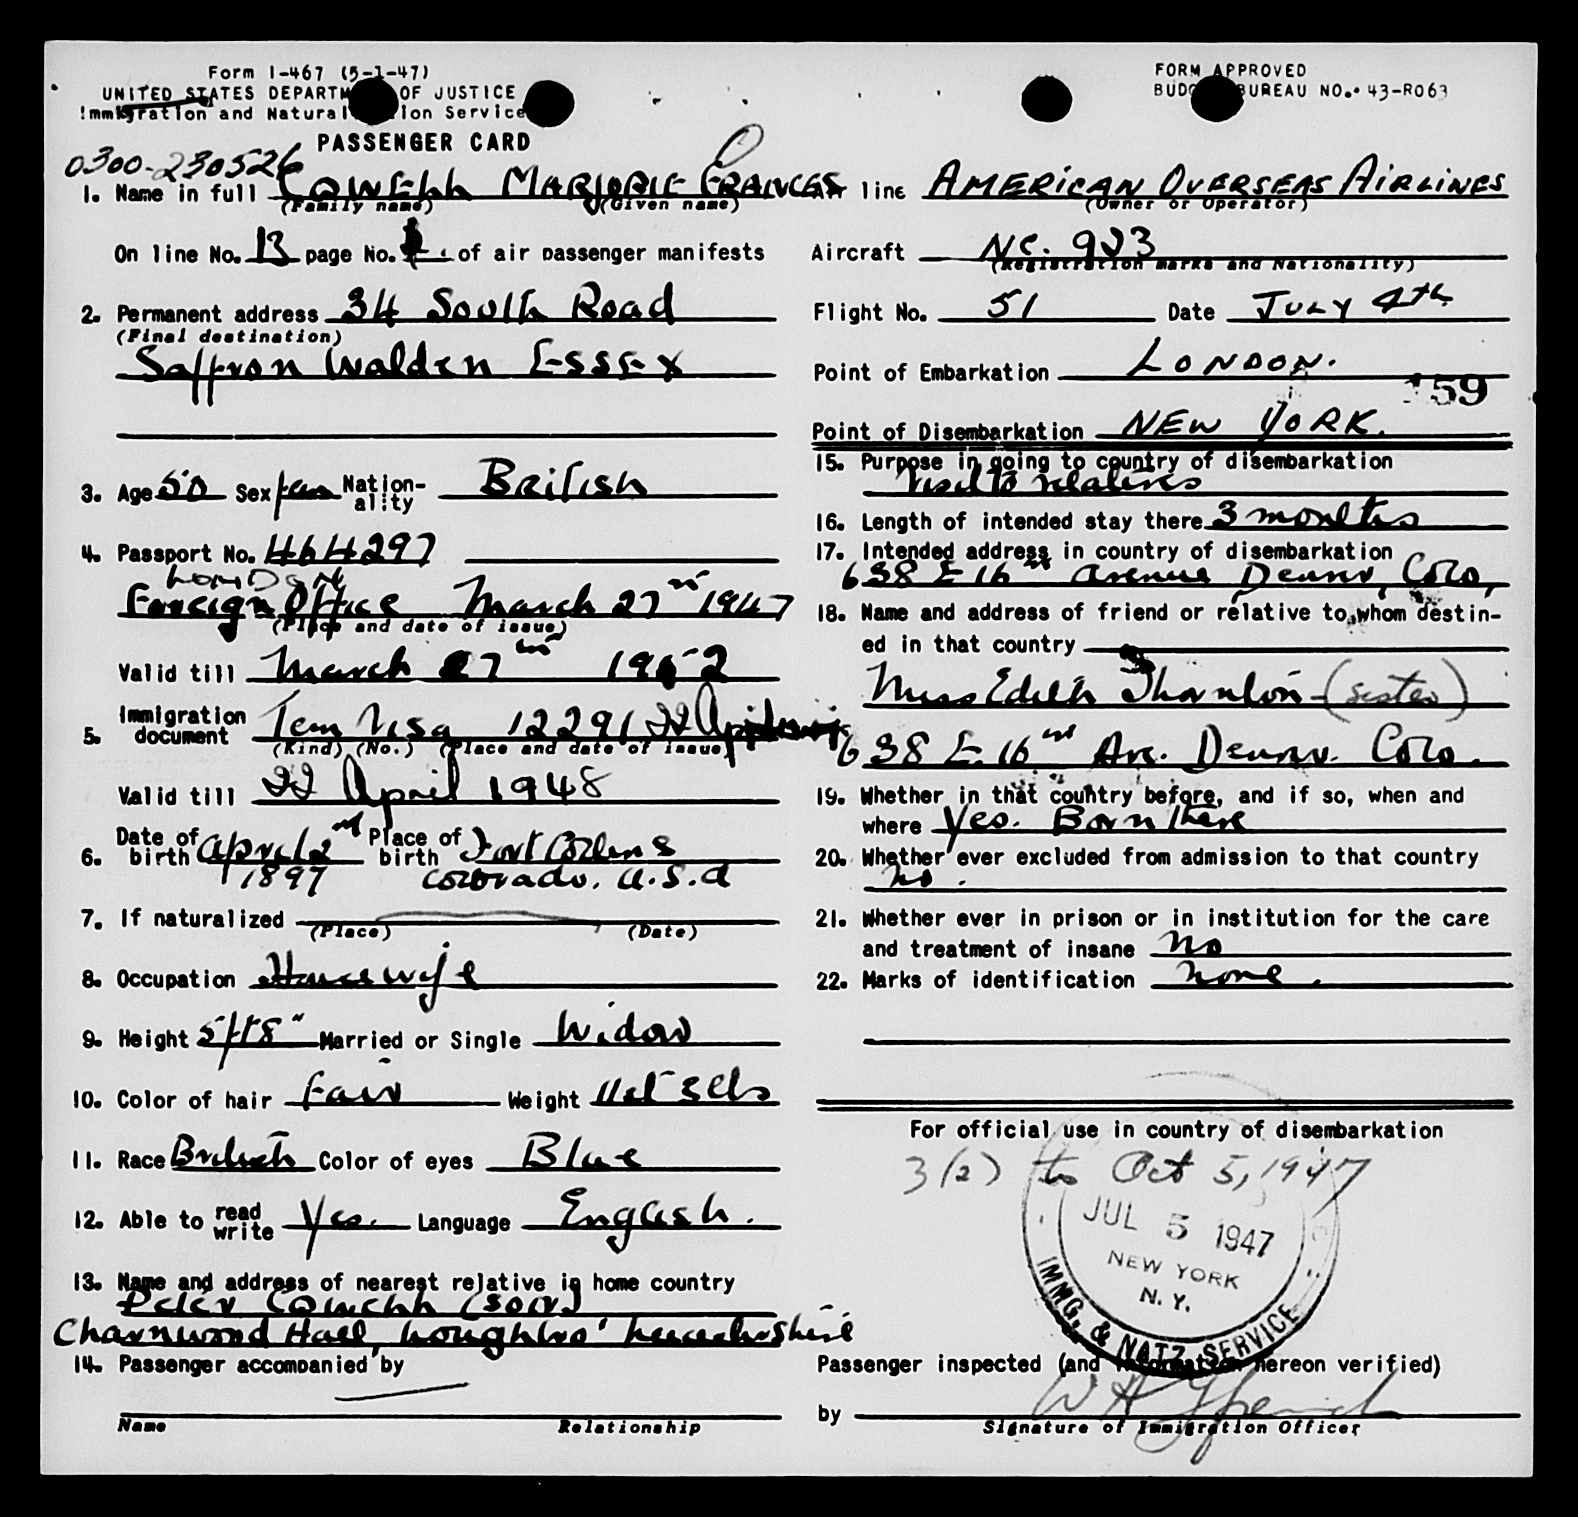 Form I-467 (5-1-47)
UNITED STATES DEPARTM OF JUSTICE
Immigration and Natural ion Service
PASSENGER CARD
FORM APPROVED
BUDG BUREAU NO. 43-R063
0300-230526
1. Name in full COWELL MARJORIE FRANCES
(Family name) (Given name)
On line No. 13 page No. of air passenger manifests
2. Permanent address 34 South Road
(Final destination)
Saffron Walden ESSEX
3. Age 50 Sex fem Nation-ality British
4. Passport No. 464297
LONDON
Foreign Office March 27th 1947
(Place and date of issue)
Valid till March 27th 1952
5. Immigration document Tem Visa 12291 22 April
(Kind) (No.) (Place and date of issue)
Valid till 22 April 1948
6. Date of birth April 2nd 1897 Place of birth Fort Collins
Colorado. U.S.A
7. If naturalized
(Place) (Date)
8. Occupation Housewife
9. Height 5ft 8" Married or Single Widow
10. Color of hair Fair Weight 11st 3lbs
11. Race British Color of eyes Blue
12. Able to read write Yes. Language English.
13. Name and address of nearest relative in home country
Peter Cowell (son)
Charnwood Hall, Loughbro' Leicestershire
14. Passenger accompanied by
Name Relationship
Air line AMERICAN OVERSEAS AIRLINES
(Owner or Operator)
Aircraft NC. 923
(Registration marks and Nationality)
Flight No. 51 Date JULY 4th
Point of Embarkation LONDON.
159
Point of Disembarkation NEW YORK.
15. Purpose in going to country of disembarkation
Visit to relatives
16. Length of intended stay there 3 months
17. Intended address in country of disembarkation
638 E 16th Avenue Denver, Colo,
18. Name and address of friend or relative to whom destin-
ed in that country
Miss Edith Thornton (sister)
638 E. 16th Ave. Denver. Colo.
19. Whether in that country before, and if so, when and
where Yes. Born there
20. Whether ever excluded from admission to that country
No.
21. Whether ever in prison or in institution for the care
and treatment of insane No
22. Marks of identification None.
For official use in country of disembarkation
3(2) to Oct 5, 1947
JUL 5 1947
NEW YORK
N. Y.
IMMG. & NATZ. SERVICE
Passenger inspected (and information hereon verified)
by W H
Signature of Immigration Officer